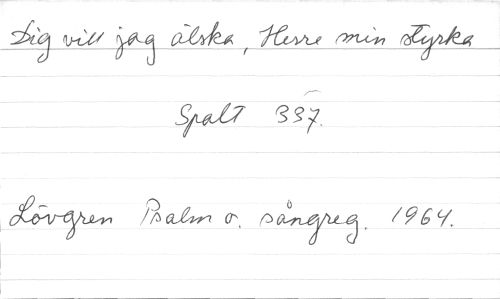 Dig vill jag älska, Herre min styrka
Spalt 337.
Lövgren Psalm o. sångreg. 1964.